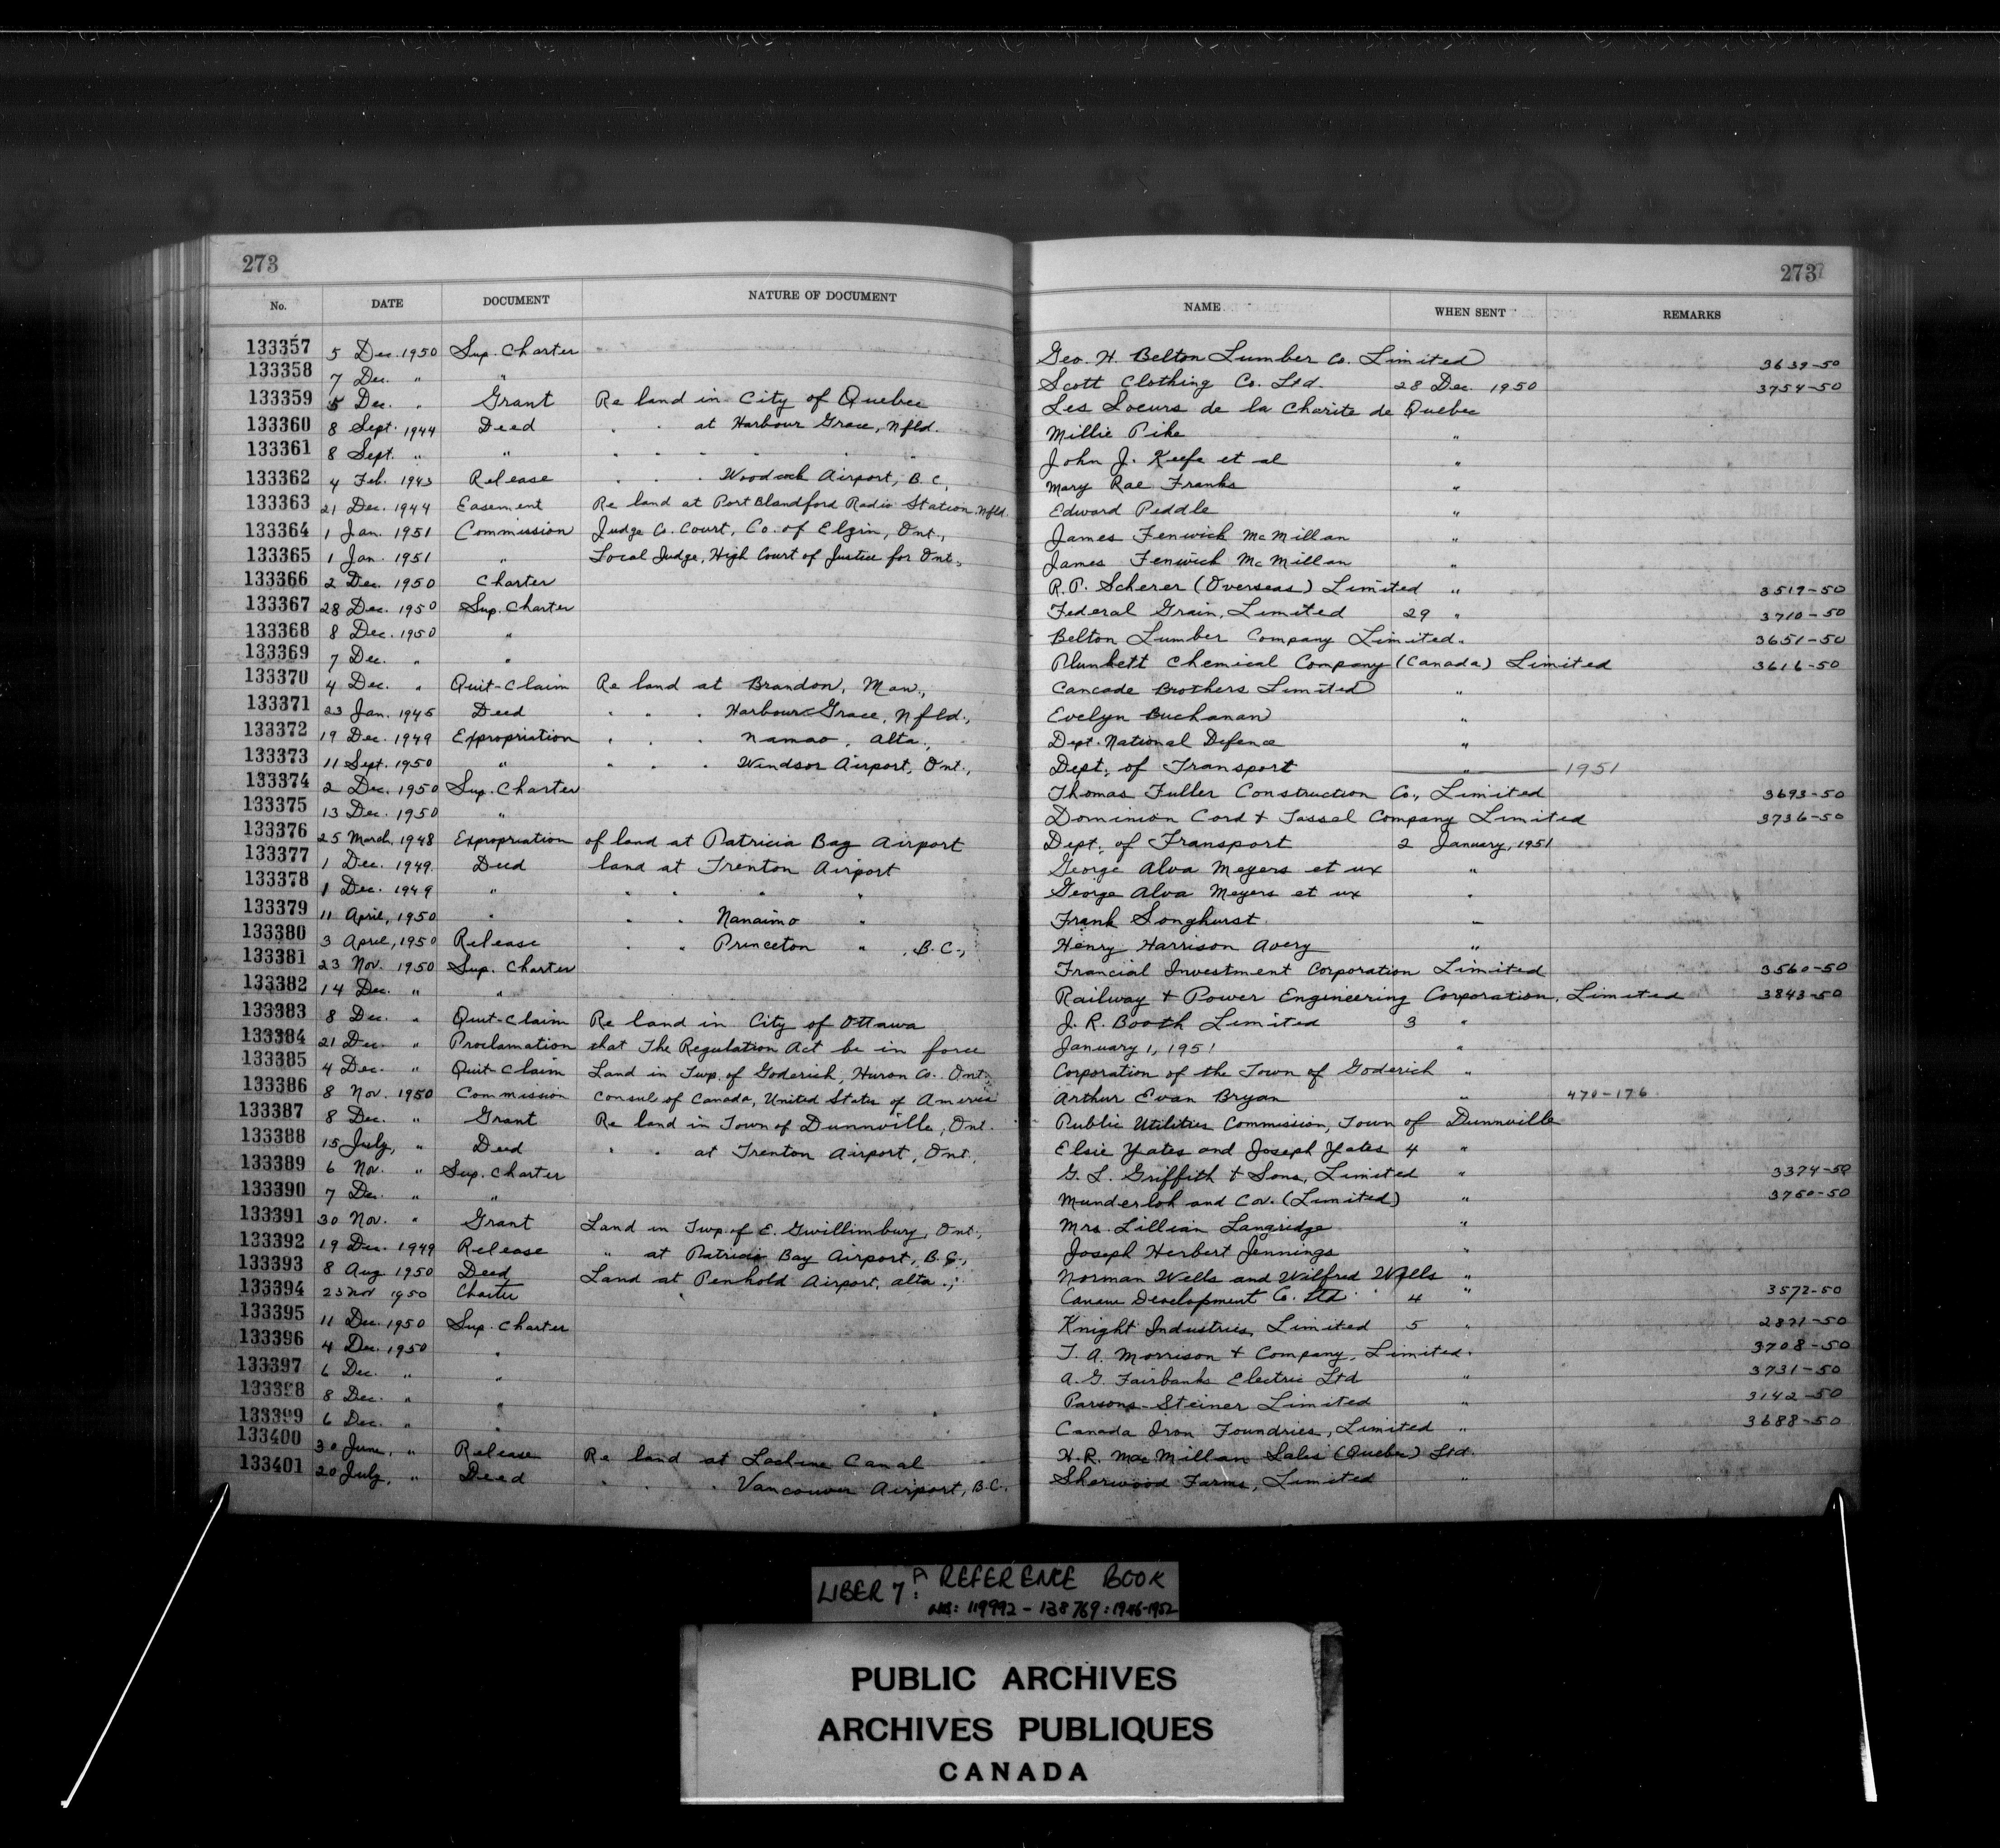 273 273
No. DATE DOCUMENT NATURE OF DOCUMENT NAME WHEN SENT REMARKS
133357 5 Dec. 1950 Sup. Charter Geo. H. Belton Lumber Co. Limited 3639-50
133358 7 Dec. " " Scott Clothing Co. Ltd. 28 Dec. 1950 3754-50
133359 5 Dec. " Grant Re land in City of Quebec Les Soeurs de la Charite de Quebec
133360 8 Sept. 1944 Deed " " at Harbour Grace, Nfld. Millie Pike "
133361 8 Sept. " " " " " " " " John J. Keefe et al "
133362 4 Feb. 1943 Release " " " Woodcock Airport, B.C, Mary Rae Franks "
133363 21 Dec. 1944 Easement Re land at Port Blandford Radio Station. Nfld. Edward Peddle "
133364 1 Jan. 1951 Commission Judge Co. Court, Co. of Elgin, Ont., James Fenwick McMillan "
133365 1 Jan. 1951 " Local Judge, High Court of Justice for Ont., James Fenwick McMillan "
133366 2 Dec. 1950 Charter R.P. Scherer (Overseas) Limited " 3519-50
133367 28 Dec. 1950 Sup. Charter Federal Grain, Limited 29 " 3710-50
133368 8 Dec. 1950 " Belton Lumber Company Limited. " 3651-50
133369 7 Dec. " " Plunkett Chemical Company (Canada) Limited 3616-50
133370 4 Dec. " Quit-Claim Re land at Brandon, Man., Cancade Brothers Limited "
133371 23 Jan. 1945 Deed " " " Harbour Grace, Nfld., Evelyn Buchanan "
133372 19 Dec. 1949 Expropriation " " " Namao, Alta., Dept. National Defence "
133373 11 Sept. 1950 " " " " Windsor Airport, Ont., Dept. of Transport " 1951
133374 2 Dec. 1950 Sup. Charter Thomas Fuller Construction Co., Limited 3693-50
133375 13 Dec. 1950 " Dominion Cord & Tassel Company Limited 3736-50
133376 25 March, 1948 Expropriation of land at Patricia Bay Airport Dept. of Transport 2 January, 1951
133377 1 Dec. 1949. Deed land at Trenton Airport George Alva Meyers et ux "
133378 1 Dec. 1949 " " " " " George Alva Meyers et ux "
133379 11 April, 1950 " " " Nanaimo " Frank Songhurst. "
133380 3 April, 1950 Release " " Princeton " , B.C., Henry Harrison Avery "
133381 23 Nov. 1950 Sup. Charter Francial Investment Corporation Limited 3560-50
133382 14 Dec. " " Railway & Power Engineering Corporation, Limited 3843-50
133383 8 Dec. " Quit-Claim Re land in City of Ottawa J. R. Booth Limited 3 "
133384 21 Dec. " Proclamation that The Regulation Act be in force January 1, 1951 "
133385 4 Dec. " Quit Claim Land in Twp. of Goderich, Huron Co. Ont. Corporation of the Town of Goderich "
133386 8 Nov. 1950 Commission Consul of Canada, United States of America Arthur Evan Bryan " 470-176
133387 8 Dec. " Grant Re land in Town of Dunnville, Ont. Public Utilities Commission, Town of Dunnville
133388 15 July, " Deed " " at Trenton Airport, Ont. Elsie Yates and Joseph Yates 4 "
133389 6 Nov. " Sup. Charter G. L. Griffith & Sons, Limited " 3374-50
133390 7 Dec. " " Munderloh and Co. (Limited) " 3750-50
133391 30 Nov. " Grant Land in Twp. of E. Gwillimbury, Ont., Mrs. Lillian Langridge "
133392 19 Dec. 1949 Release " at Patricia Bay Airport, B.C., Joseph Herbert Jennings "
133393 8 Aug 1950 Deed Land at Penhold Airport, Alta., Norman Wells and Wilfred Wells "
133394 23 Nov 1950 Charter Development Co. Ltd 4 " 3572-50
133395 11 Dec. 1950 Sup. Charter Knight Industries, Limited 5 " 2871-50
133396 4 Dec. 1950 " T. A. Morrison & Company, Limited. 3708-50
133397 6 Dec. " " A. G. Fairbanks Electric Ltd " 3731-50
133398 8 Dec. " " Parsons-Steiner Limited " 3142-50
133399 6 Dec. " " Canada Iron Foundries, Limited " 3688-50
133400 30 June, " Release Re land at Lachine Canal H. R. MacMillan Sales (Quebec) Ltd.
133401 20 July, " Deed " " " Vancouver Airport, B.C. Sherwood Farms, Limited "
LIBER 7A: REFERENCE BOOK
NOS: 119992 - 138769: 1946-1952
PUBLIC ARCHIVES
ARCHIVES PUBLIQUES
CANADA